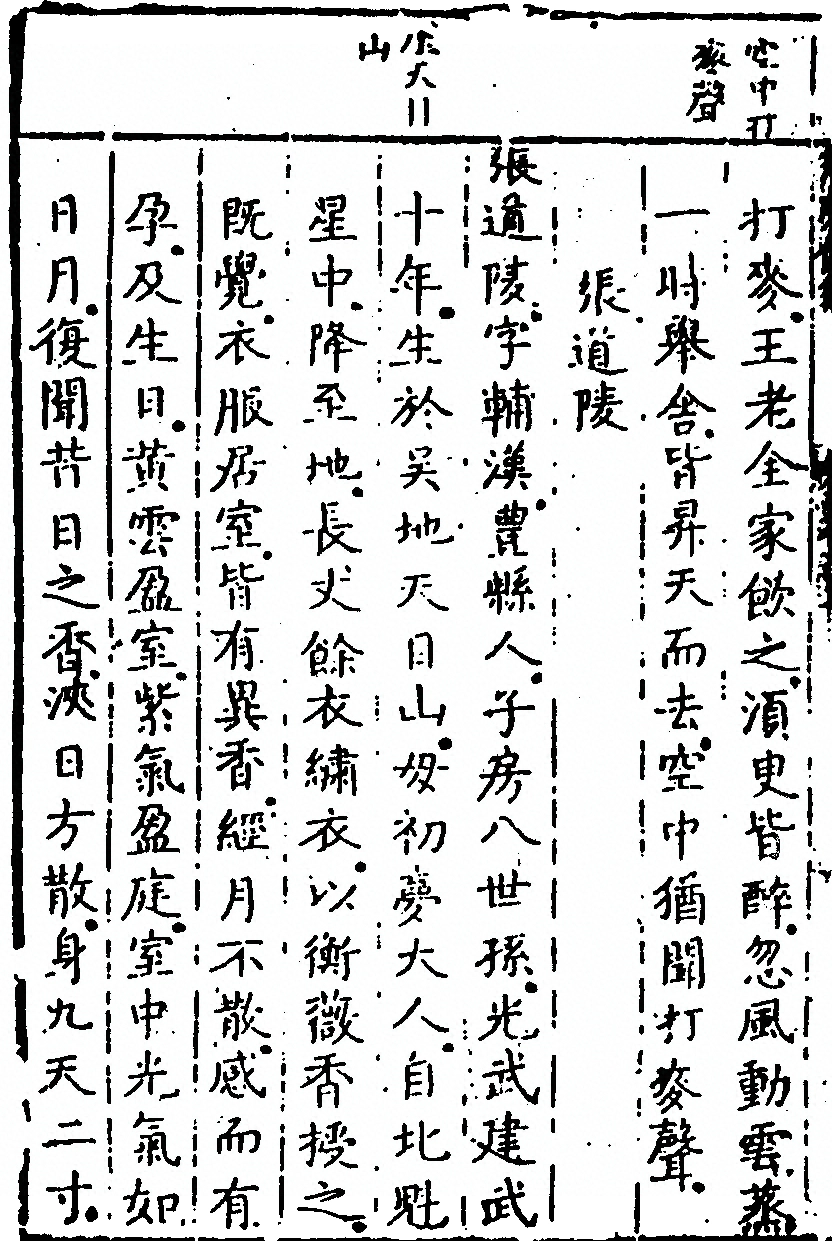 空中打
麥聲
生天日
山
打麥王老全家飲之須臾皆醉忽風動雲蒸
一时舉舍皆昇天而去空中猶聞打麥聲
張道陵
張道陵字輔漢豊縣人子房八世孫光武建武
十年生於吴地天目山母初夢大人自北魁
星中降至地長丈餘衣繡衣以衡薇香授之
既覺衣服居室皆有異香經月不散感而有
孕及生日黄雲盈室紫氣盈庭室中光氣如
日月復聞昔日之香浹日方散身九天二寸